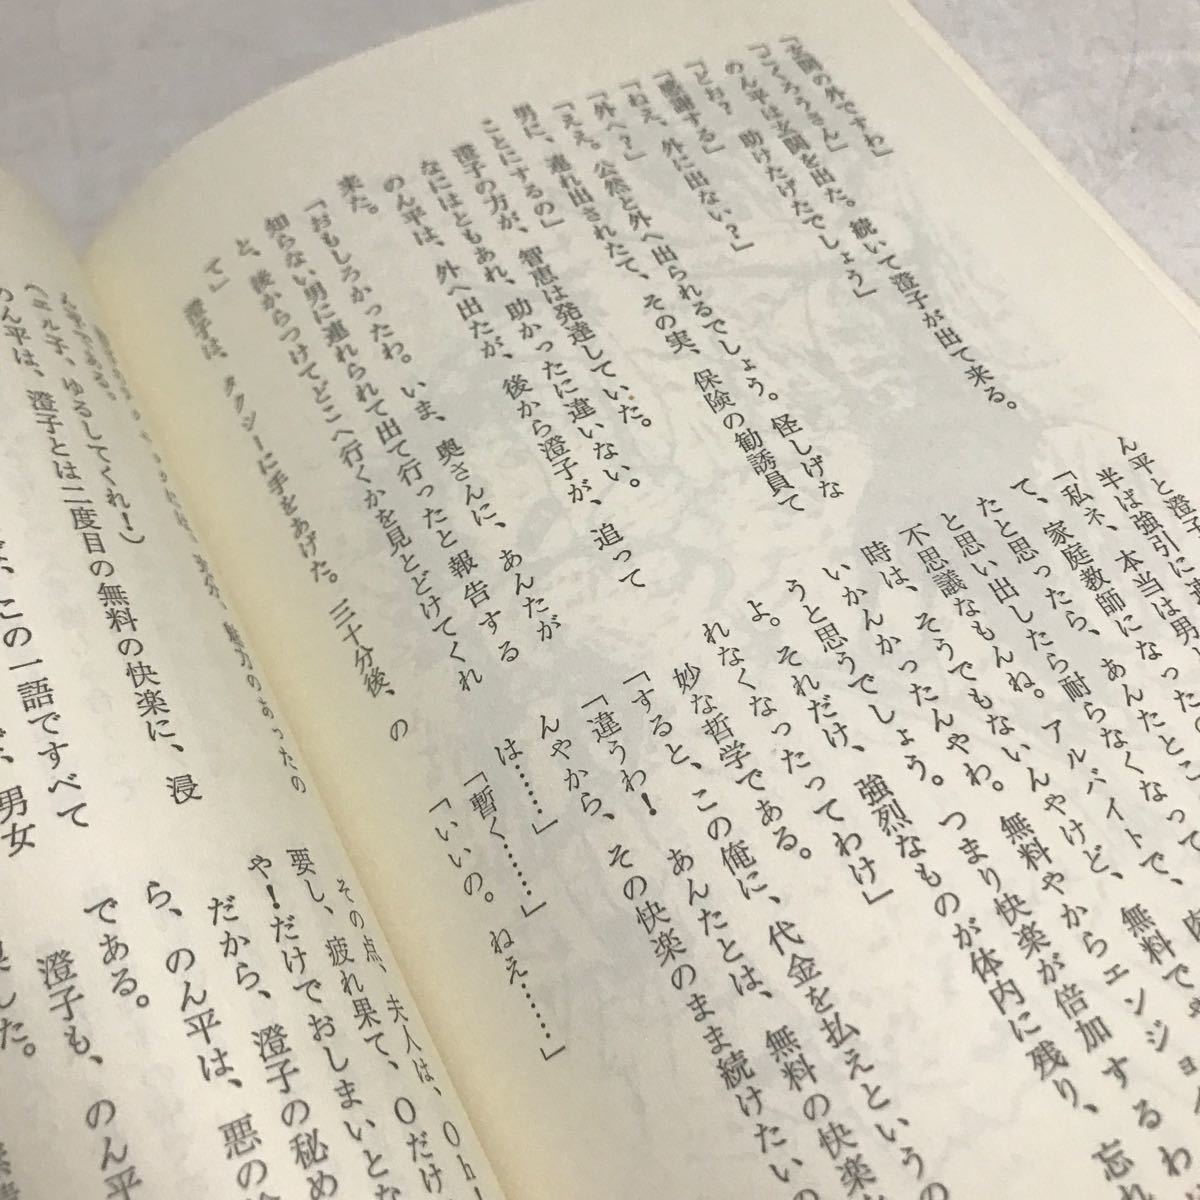 「玄関の外ですわ」
「ごくろうさん」
のん平は玄関を出た。続いて澄子が出て来る。
「どお? 助けたげたでしょう」
「感謝する」
「ねえ、外に出ない?」
「外へ?」
「ええ。公然と外へ出られるでしょう。怪しげな
男に、連れ出されたて、その実、保険の勧誘員て
ことにするの」
澄子の方が、智恵は発達していた。
なにはともあれ、助かったに違いない。
のん平は、外へ出たが、後から澄子が、追って
来た。
「おもしろかったわ。いま、奥さんに、あんたが
知らない男に連れられて出て行ったと報告する
と、後からつけてどこへ行くかを見とどけてくれ
て」
澄子は、タクシーに手をあげた。三十分後、の
ん平と澄子
半ば強引に
「私ネ、本当は男
て、家庭教師になったの
たと思ったら、あんたとこ
と思い出したら耐らなくなって
不思議なもんね。アルバイトで、
時は、そうでもないんやけど、無料でや
いかんかったんやわ。無料やからエンジョ
うと思うでしょう。つまり快楽が倍加するわ
よ。それだけ、強烈なものが体内に残り、忘
れなくなったってわけ」
妙な哲学である。
「すると、この俺に、代金を払えというの
「違うわ! あんたとは、無料の快楽
んやから、その快楽のまま続けたいの
は……」
「暫く……」
「いいの。ねえ……」
(エル子、ゆるしてくれ!)
のん平は、澄子とは二度目の無料の快楽に、浸
この一語ですべて
男女
その点、夫人は、Oh
要し、疲れ果て、Oだけ
や!だけでおしまいとな
だから、澄子の秘め
ら、のん平は、悪の
である。
澄子も、のん平